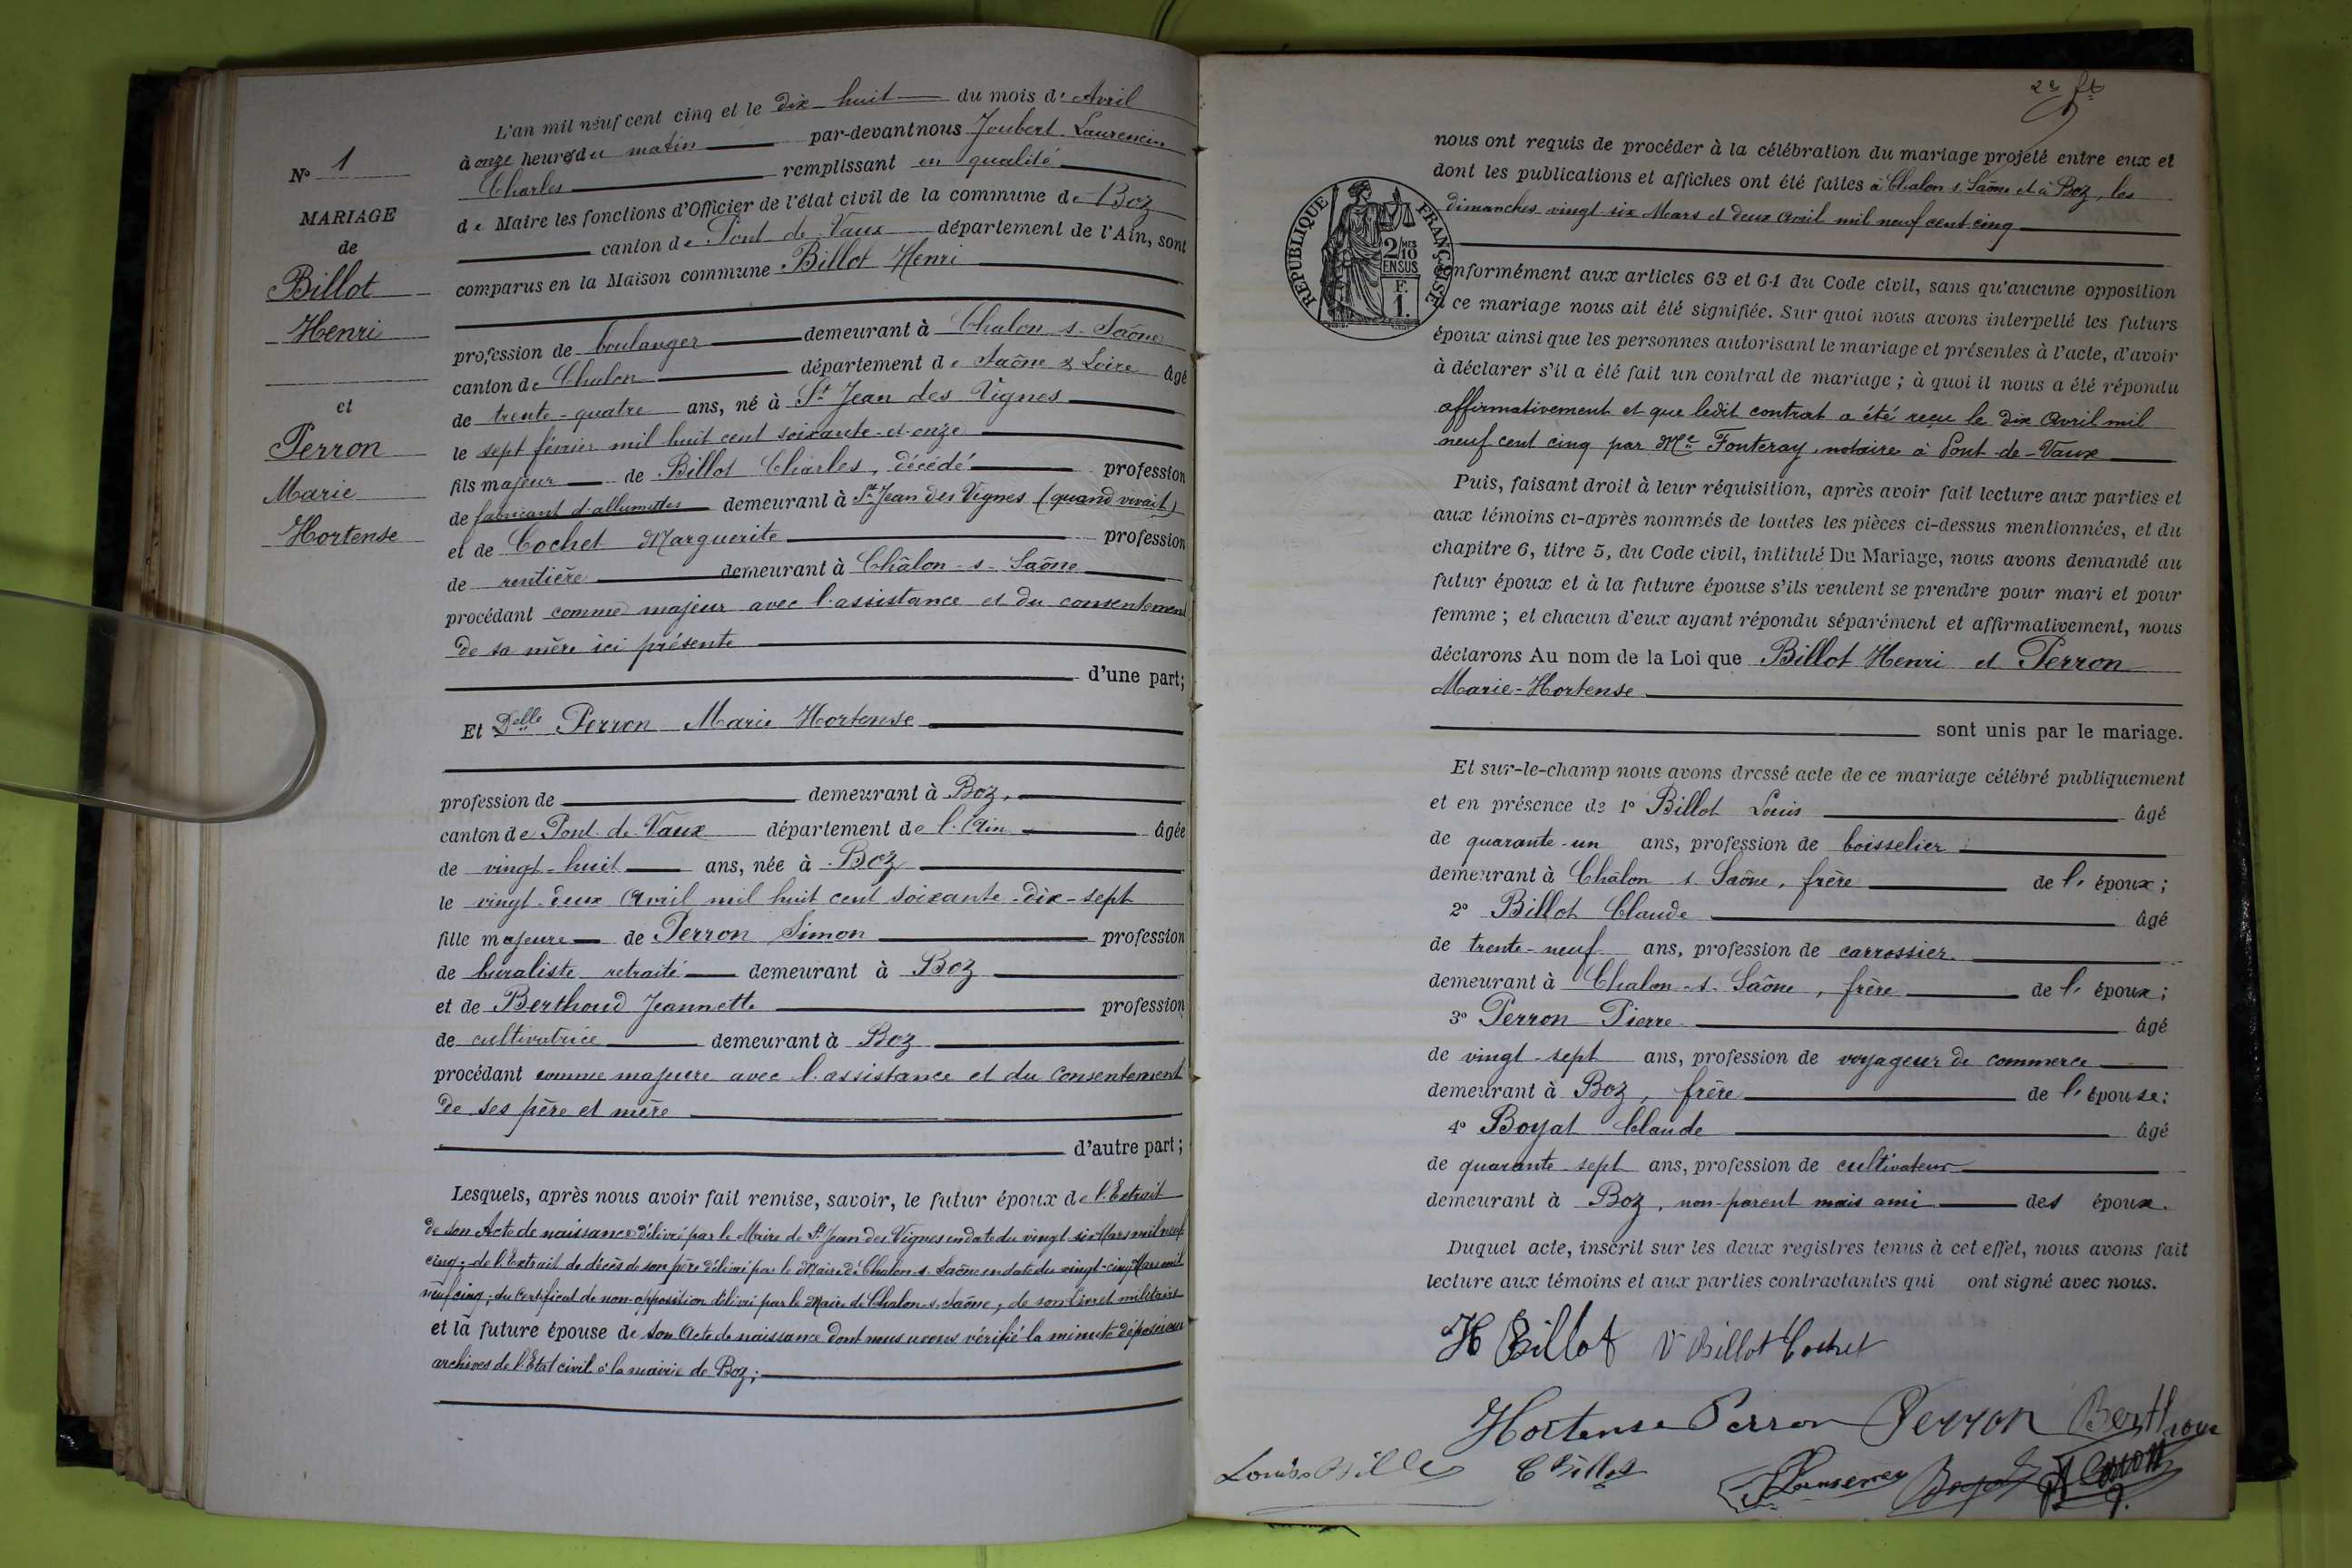 N° 1
MARIAGE
de
Billot
Henri
et
Perron
Marie
Hortense
L'an mil neuf cent cinq et le dix-huit du mois de Avril
à onze heures du matin par-devant nous Joubert Laurencin
Charles remplissant en qualité
de Maire les fonctions d'Officier de l'état civil de la commune de Boz
canton de Pont de Vaux département de l'Ain, sont
comparus en la Maison commune Billot Henri
profession de boulanger demeurant à Chalon s. Saône
canton de Chalon département de Saône & Loire âgé
de trente-quatre ans, né à St Jean des Vignes
le sept février mil huit cent soixante-et-onze
fils majeur de Billot Charles, décédé profession
de fabricant d'allumettes demeurant à St Jean des Vignes (quand vivait)
et de Cochet Marguerite profession
de rentière demeurant à Châlon-s-Saône
procédant comme majeur avec l'assistance et du consentement
de sa mère ici présente
d'une part;
Et Delle Perron Marie Hortense
profession de demeurant à Boz,
canton de Pont de Vaux département de l'Ain âgée
de vingt-huit ans, née à Boz
le vingt-deux Avril mil huit cent soixante-dix-sept
fille majeure de Perron Simon profession
de buraliste retraité demeurant à Boz
et de Berthoud Jeannette profession
de cultivatrice demeurant à Boz
procédant comme majeure avec l'assistance et du consentement
de ses père et mère
d'autre part;
Lesquels, après nous avoir fait remise, savoir, le futur époux de l'Extrait
de son Acte de naissance délivré par le Maire de St Jean des Vignes en date du vingt six Mars mil neuf
cinq; de l'Extrait de décès de son père délivré par le Maire de Chalon-s-Saône en date du vingt-cinq Mars mil
neuf cinq; du Certificat de non-opposition délivré par le Maire de Chalon-s-Saône; de son Livret militaire
et la future épouse de son Acte de naissance dont nous avons vérifié la minute déposée aux
archives de l'Etat civil à la mairie de Boz;
2e ft
nous ont requis de procéder à la célébration du mariage projeté entre eux et
dont les publications et affiches ont été faites à Chalon s. Saône et à Boz, les
dimanches vingt-six Mars et deux Avril mil neuf cent cinq
RÉPUBLIQUE FRANÇAISE
2/10 MES
EN SUS
F.
1.
conformément aux articles 63 et 64 du Code civil, sans qu'aucune opposition
à ce mariage nous ait été signifiée. Sur quoi nous avons interpellé les futurs
époux ainsi que les personnes autorisant le mariage et présentes à l'acte, d'avoir
à déclarer s'il a été fait un contrat de mariage; à quoi il nous a été répondu
affirmativement et que ledit contrat a été reçu le dix Avril mil
neuf cent cinq par Me Fonteray, notaire à Pont-de-Vaux
Puis, faisant droit à leur réquisition, après avoir fait lecture aux parties et
aux témoins ci-après nommés de toutes les pièces ci-dessus mentionnées, et du
chapitre 6, titre 5, du Code civil, intitulé Du Mariage, nous avons demandé au
futur époux et à la future épouse s'ils veulent se prendre pour mari et pour
femme; et chacun d'eux ayant répondu séparément et affirmativement, nous
déclarons Au nom de la Loi que Billot Henri et Perron
Marie-Hortense
sont unis par le mariage.
Et sur-le-champ nous avons dressé acte de ce mariage célébré publiquement
et en présence de 1° Billot Louis âgé
de quarante-un ans, profession de boisselier
demeurant à Châlon s. Saône, frère de l' époux;
2° Billot Claude âgé
de trente-neuf ans, profession de carrossier
demeurant à Chalon-s-Saône, frère de l' époux;
3° Perron Pierre âgé
de vingt-sept ans, profession de voyageur de commerce
demeurant à Boz, frère de l'épouse;
4° Boyat Claude âgé
de quarante-sept ans, profession de cultivateur
demeurant à Boz, non-parent mais ami des époux.
Duquel acte, inscrit sur les deux registres tenus à cet effet, nous avons fait
lecture aux témoins et aux parties contractantes qui ont signé avec nous.
H Billot Ve Billot Cochet
Hortense Perron Perron Berthoud
Louis Billot C Billot Boyat Perron